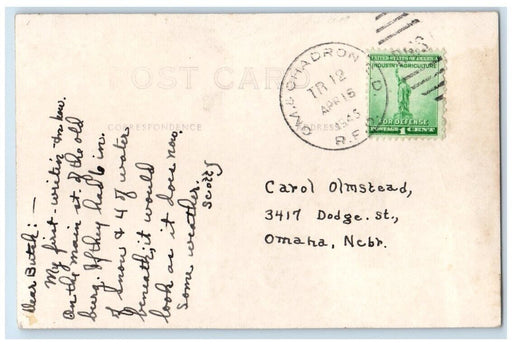 POST CARD
CORRESPONDENCE
ADDRESS
Dear Butch: —
My first-writing
on the main st. of the old
burg. If they had 6 in.
of snow & 4 of water
beneath, it would
look as it does now.
Some weather.
Scotty
OM. & CHADRON
TR 12
APR 15
1943
R.P.O.
UNITED STATES OF AMERICA
INDUSTRY AGRICULTURE
FOR DEFENSE
POSTAGE 1 CENT
Carol Olmstead,
3417 Dodge. st.,
Omaha, Nebr.